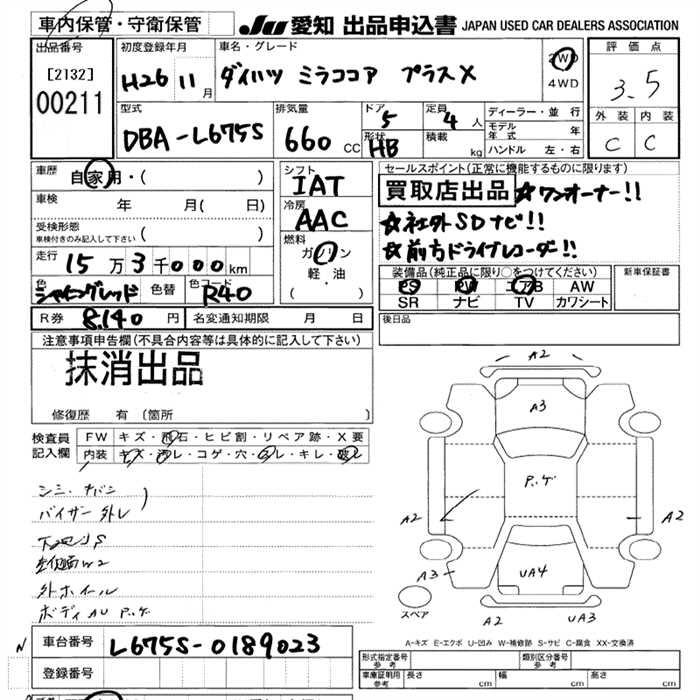 車内保管・守衛保管
JU 愛知 出品申込書 JAPAN USED CAR DEALERS ASSOCIATION
出品番号 初度登録年月 車名・グレード 評価点
[2132] H26 11月 ダイハツ ミラココア プラスX 2WD 4WD 3.5
00211
型式 排気量 ドア 定員 ディーラー・並行 外装 内装
DBA-L675S 660 CC 5 4人 モデル年式 年 C C
形状 HB 積載 kg ハンドル 左・右
車歴 自家用・( ) シフト IAT セールスポイント(正常に機能するものに限ります)
車検 年 月( 日) 冷房 AAC 買取店出品 ☆ワンオーナー!!
受検形態 ( ) ☆社外SDナビ!!
車検付きのみ記入して下さい 燃料 ☆前方ドライブレコーダー!!
走行 15万3千000km ガソリン 軽・油 ( )
装備品(純正品に限り○をつけてください) 新車保証書
色 シャイニングレッド 色替 色コード R40 PS PW エアB AW
SR ナビ TV カワシート
R券 8,140円 名変通知期限 月 日 後日品
注意事項申告欄(不具合内容等は具体的に記入して下さい)
抹消出品
修復歴 有(箇所 )
検査員記入欄 FW キズ・飛石・ヒビ割・リペア跡・X要
内装 キズ・汚レ・コゲ・穴・コレ・キレ・破レ
シミ・
バイザー外し
外ホイール
ボディAU P.ゲ
A2
A3
P.ゲ
A2 A2
A3 UA4
スペア A2 UA3
A-キズ E-エクボ U-凹み W-補修跡 S-サビ C-腐食 XX-交換済
N
車台番号 L675S-0189023
登録番号
形式指定番号 参考 類別区分番号 参考
車庫証明用 参考 長さ cm 幅 cm 高さ cm